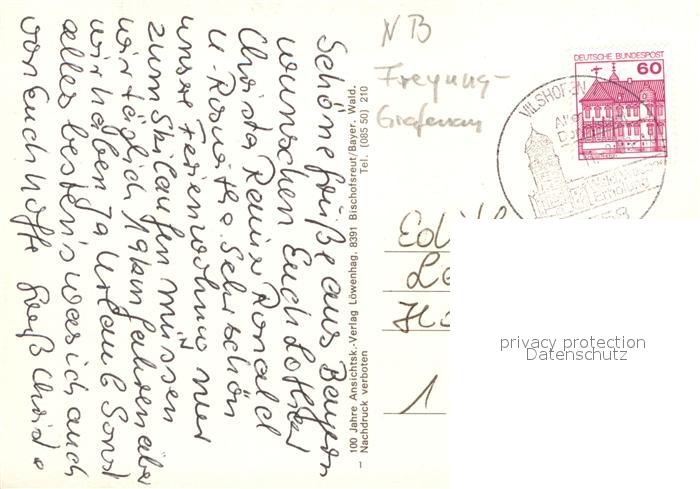 Schöne Grüße aus Bayern
wünschen Euch Lothar
Christa Rainer Ronald
u. Roswitha. Sehr schön
unsre Ferienwohnu nur
zum Skilaufen müssen
wir täglich 19 km fahren aber
wir haben Ja Urlaub Sonst
alles bestens was ich auch
von Euch hoffe Gruß Christa
100 Jahre Ansichtsk.-Verlag Löwenhag, 8391 Bischofsreut/Bayer. Wald.
Nachdruck verboten Tel. (085 50) 210
1
NB
Freyung-
Grafenau
DEUTSCHE BUNDESPOST
60
VILSHOFEN
Erholung
Edi
Le
Ha
1
privacy protection
Datenschutz